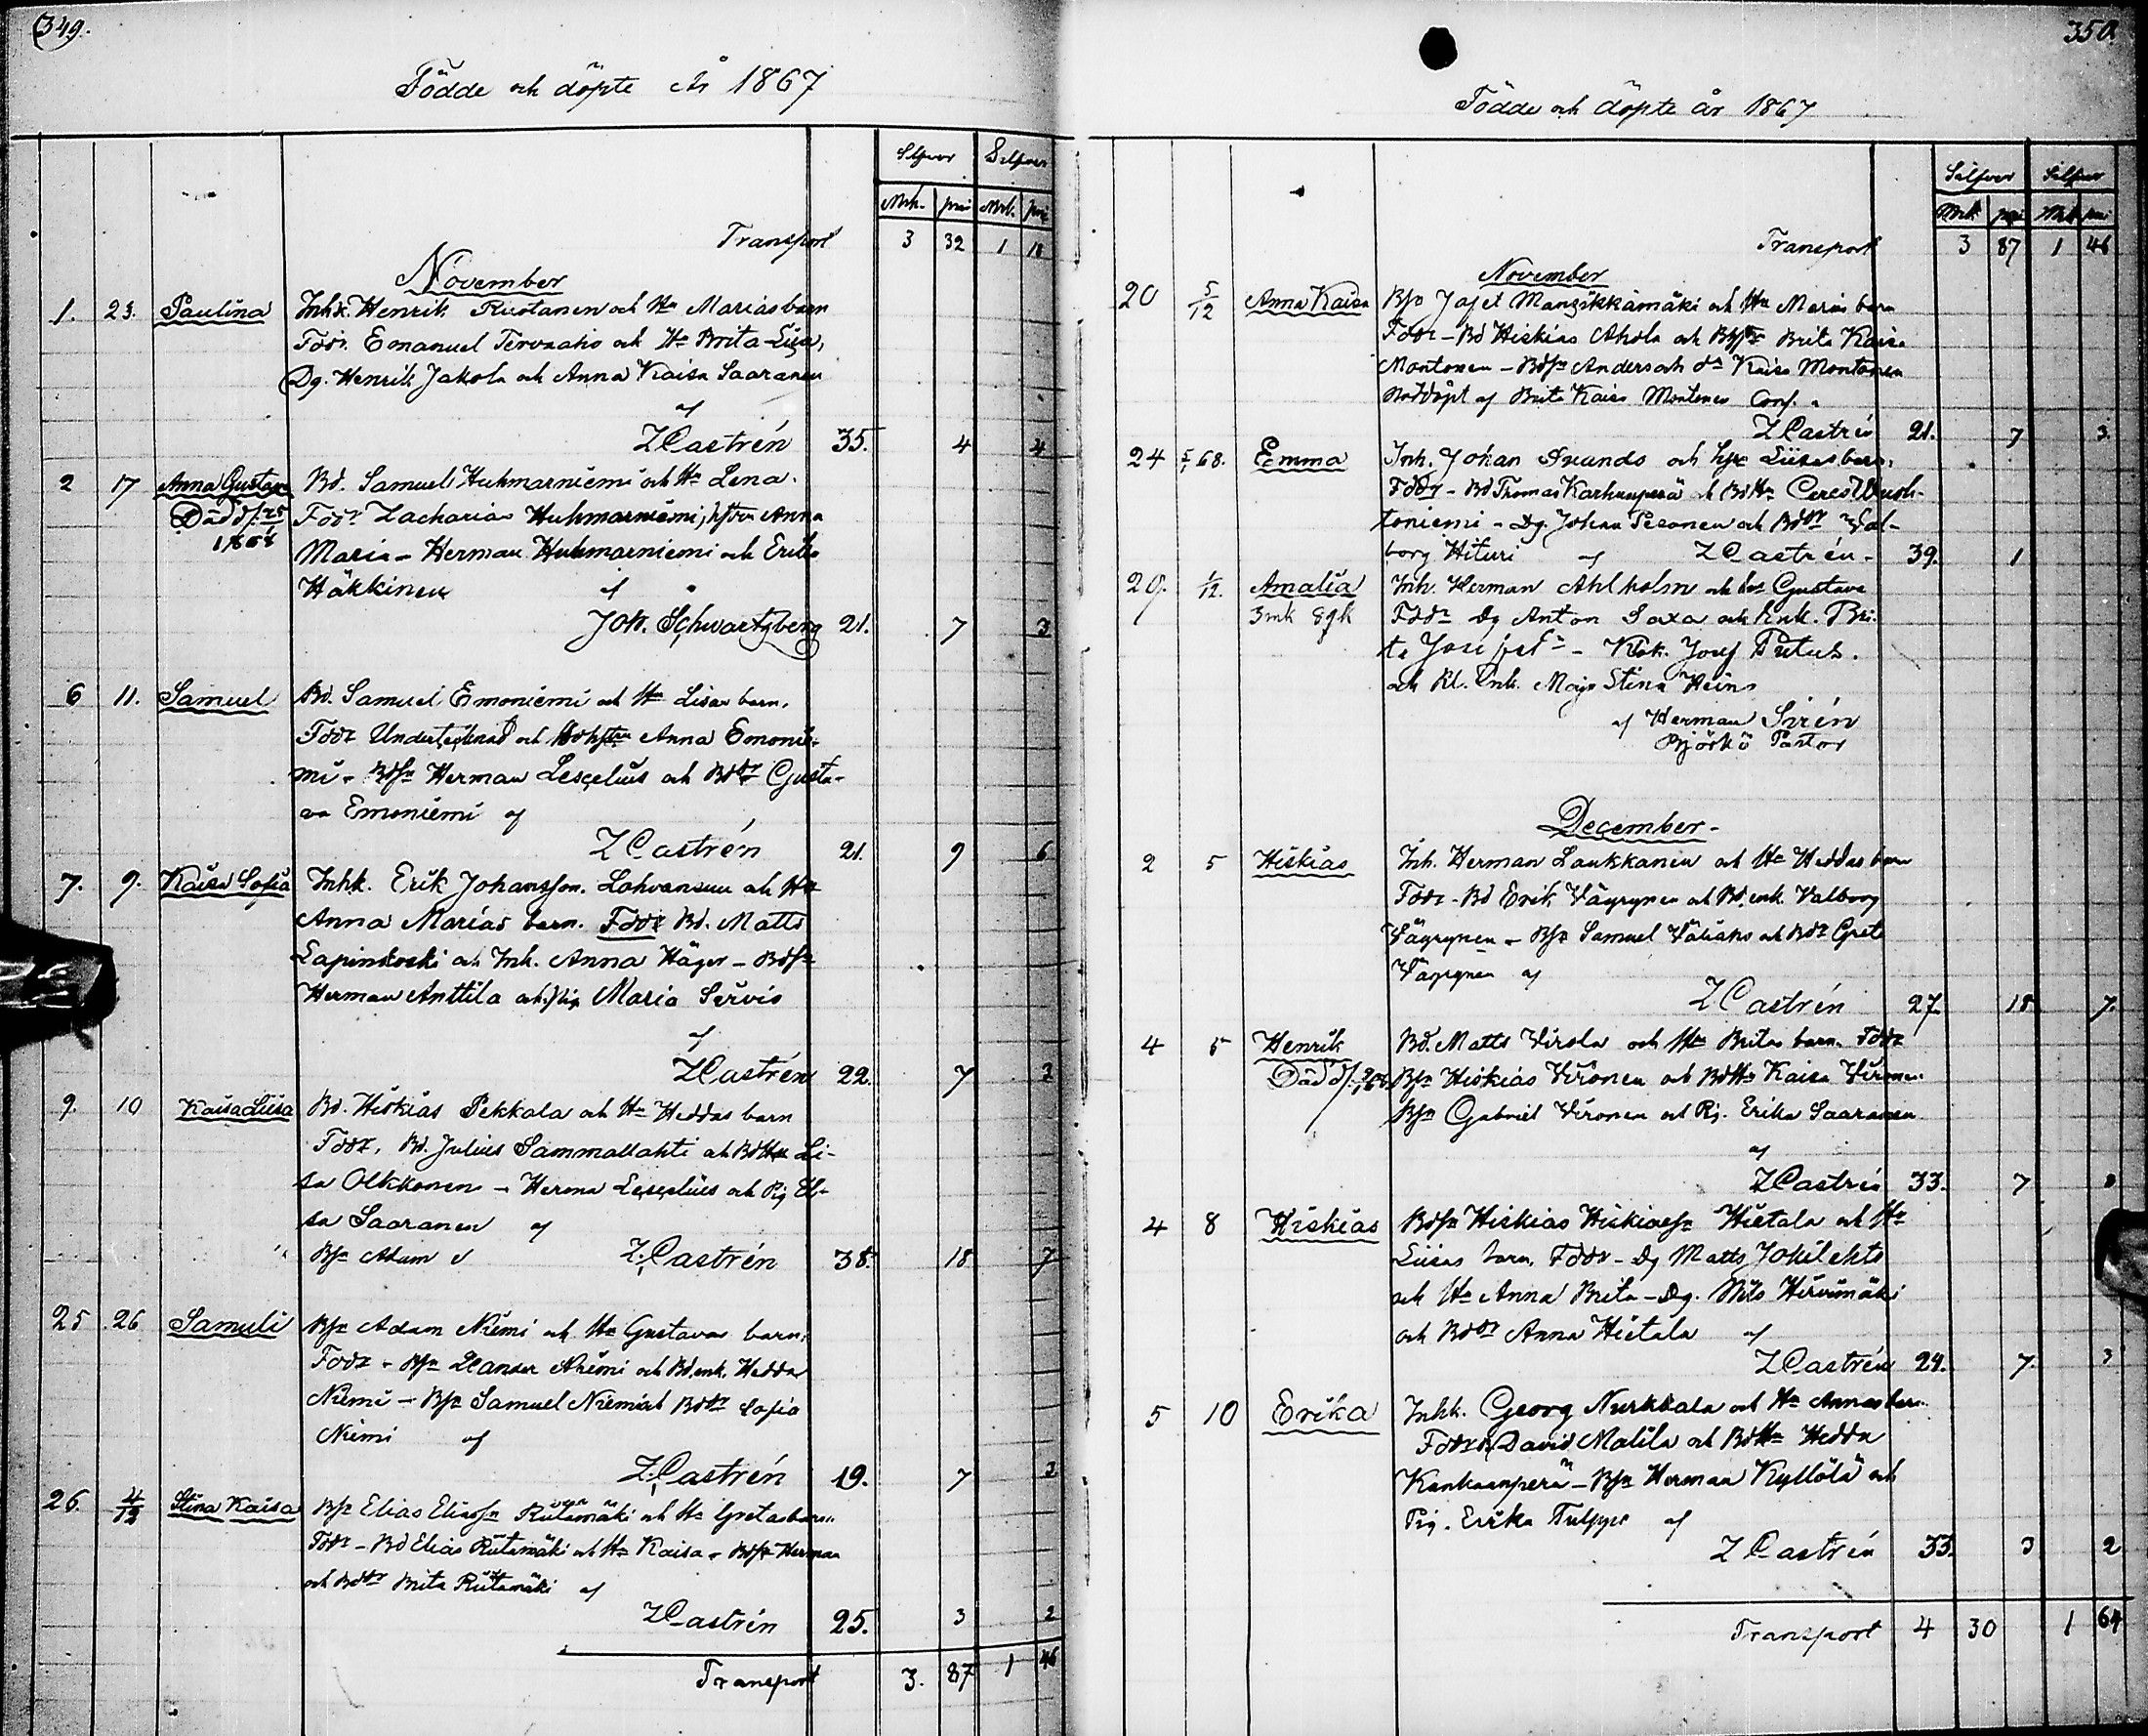 349.
Födde och döpte År 1867
Silfver Silfver
Mrk. pni Mrk. pni
Transport 3 32 1 18
November
1. 23. Paulina Inhk. Henrik Ruotanen och Hu Marias barn
Fadr. Emanuel Tervoaho och Hu Brita Lisa,
Dg. Henrik Jakola och Anna Kaisa Saaranen
af
Z Castrén 35. 4 4
2 17 Anna Gustava Bd. Samuel Huhmarniemi och Hu Lena.
Död d. 25 Fadr Zacharias Huhmarniemi, hstru Anna
1868 Maria - Herman Huhmarniemi och Erika
Häkkinen af
Joh. Schwartzberg 21. 7 3
6 11. Samuel Bd. Samuel Emoniemi och Hu Lisas barn.
Fadr Undertecknad och Anna Emonie-
mi - Bdsn Herman Lescelius och Bddr Gusta-
va Emoniemi af
Z Castrén 21. 9 6
7. 9. Kaisa Sofia Inhk. Erik Johansson Lohvansuu och Hu
Anna Marias barn. Fadr Bd. Matts
Lapinkoski och Inh. Anna Häger - Bdsn
Herman Anttila och pig Maria Servio
af
Z Castrén 22. 7 3
9. 10 Kaisa Liisa Bd. Hiskias Pekkala och Hu Heddas barn
Fadr. Bd. Julius Sammallahti och BdHu Li-
sa Olkkonen - Herman Lescelius och Pig El-
sa Saaranen af
Bsn Adam Z. Castrén 38. 18 7
25 26 Samuli Bsn Adam Niemi och Hu Gustavas barn.
Fadr - Bsn Niemi och Bd.enk. Hedda
Niemi - Bsn Samuel Niemi och Bddr Sofia
Niemi af
Z. Castrén 19. 7 3
26. 4/12 Stina Kaisa Bsn Elias Eliasson Riitamäki och Hu Gretas barn.
Fadr - Bd Elias Riitamäki och Hu Kaisa - Bdsn Herman
och Bddr Brita Riitamäki af
Z Castrén 25. 3 2
Transport 3. 87 1 46
350.
Födde och döpte år 1867
Silfver Silfver
Mrk pni Mrk pni
Transport 3 87 1 46
November
20 5/12 Anna Kaisa Bsn Jafet Mansikkamäki och Hu Marias barn
Fadr - Bd Hiskias Ahola och Brita Kaisa
Montonen - Bdsn Anders och dr Kaisa Montonen
Nöddöpt af Brita Kaisa Montonen Conf. a
Z Castrén 21. 7 3.
24 68. Emma Inh. Johan och Liisas barn.
Fadr - Bd Thomas Karhunperä och BdHu Ceres
toniemi - Dg. Johan Pesonen och Bddr Val-
borg Hituri af Z Castrén - 39. 1
29. 1/12. Amalia Inh. Herman Ahlholm och Gustava
3mk 8gk Fadr Dg Anton Saxa och Enk. Bri-
ta - Josef
och Kl. Enk. Maja Stina Hein
af Herman Sirén
Björkö Pastor
December -
2 5 Hiskias Inh. Herman Laukkanen och Hu Heddas barn
Fadr - Bd Erik Väyrynen och Bd.enk. Valborg
Väyrynen - Bsn Samuel Väliaho och Bddr Greta
Väyrynen af
Z Castrén 27. 18 7.
4 5 Henrik Bd. Matts Virola och Hu Britas barn. Fadr
Död d. Bsn Hiskias Vironen och BdHu Kaisa Vironen
Bsn Gabriel Vironen och Pig. Erika Saaranen
af
Z Castrén 33. 7
4 8 Hiskias Bdsn Hiskias Hiskiasson Hietala och Hu
Liisas barn. Fadr - Dg Matts Jokilehto
och Hu Anna Brita - Dg. Nils Hirvimäki
och Bddr Anna Hietala af
Z Castrén 24. 7. 3
5 10 Erika Inhk. Georg Nurkkala och Hu Annas barn.
Fadr David Matila och BdHu Hedda
Kankaanperä - Bsn Herman Kyllölä och
Pig. Erika Tulppo af
Z Castrén 33. 3 2
Transport 4 30 1 64